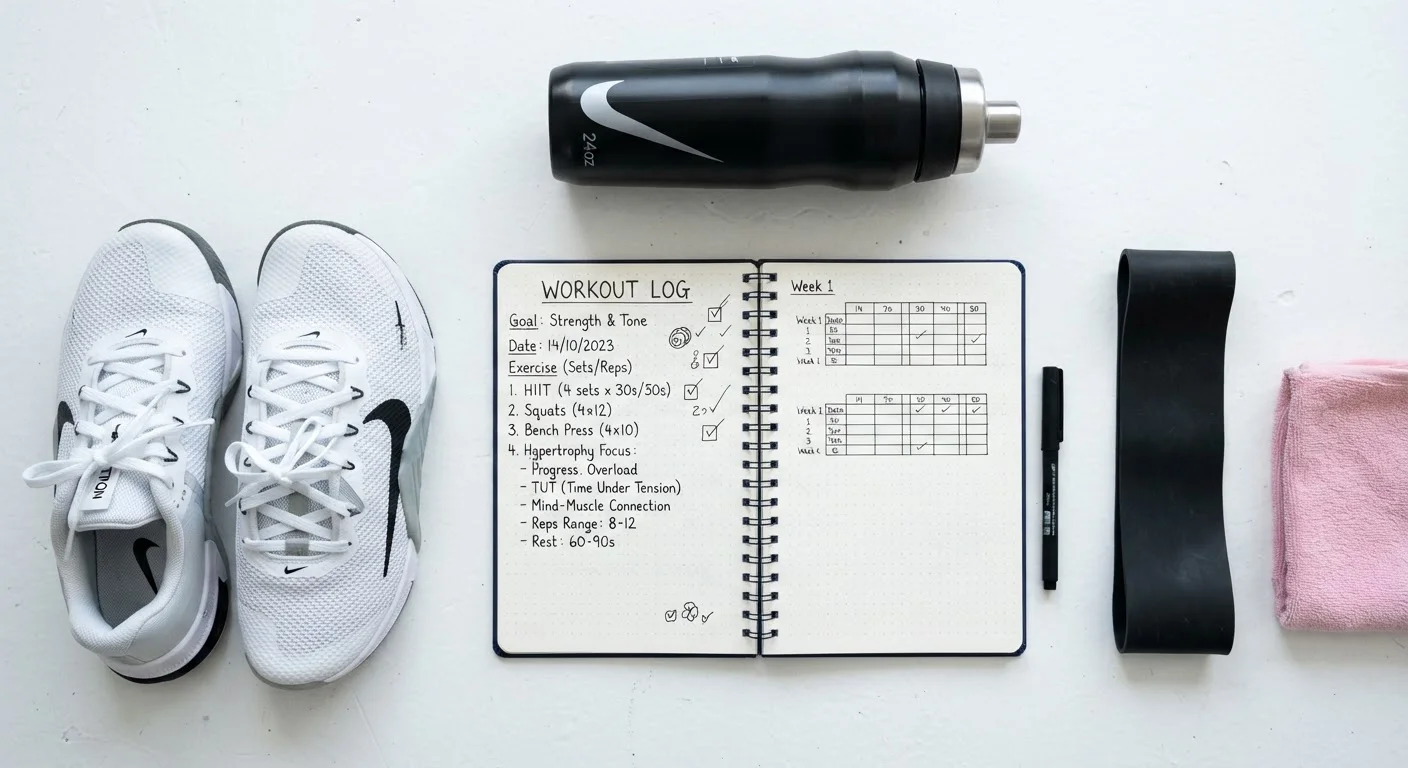 24oz
WORKOUT LOG
Goal: Strength & Tone
Date: 14/10/2023
Exercise (Sets/Reps)
1. HIIT (4 sets x 30s/50s)
2. Squats (4x12)
3. Bench Press (4x10)
4. Hypertrophy Focus:
- Progress. Overload
- TUT (Time Under Tension)
- Mind-Muscle Connection
- Reps Range: 8-12
- Rest: 60-90s
Week 1
14 70 30 40 50
Week 1
1
2
3
Week 1
1
2
3